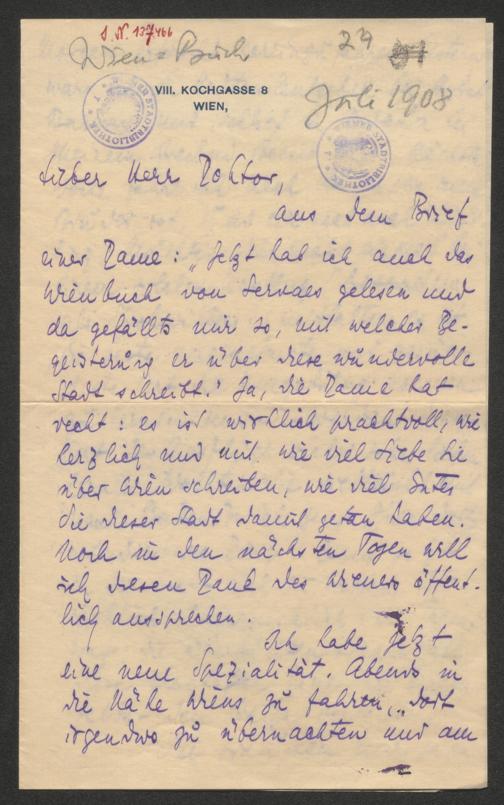 J. N. 137466
Wien-Buch
24
VIII. KOCHGASSE 8
WIEN,
Juli 1908
Lieber Herr Doktor,
aus dem Brief
einer Dame: „Jetzt hab ich auch das
Wienbuch von Servaes gelesen und
da gefällts mir so, mit welcher Be-
geisterung er über diese wundervolle
Stadt schreibt.“ Ja, die Dame hat
recht: es ist wirklich prachtvoll, wie
herzlich und mit wie viel Liebe Sie
über Wien schreiben, wie viel Gutes
Sie dieser Stadt damit getan haben.
Noch in den nächsten Tagen will
ich diesen Dank des Wieners öffent-
lich aussprechen.
Ich habe jetzt
eine neue Spezialität. Abends in
die Nähe Wiens zu fahren, dort
irgendwo zu übernachten und am